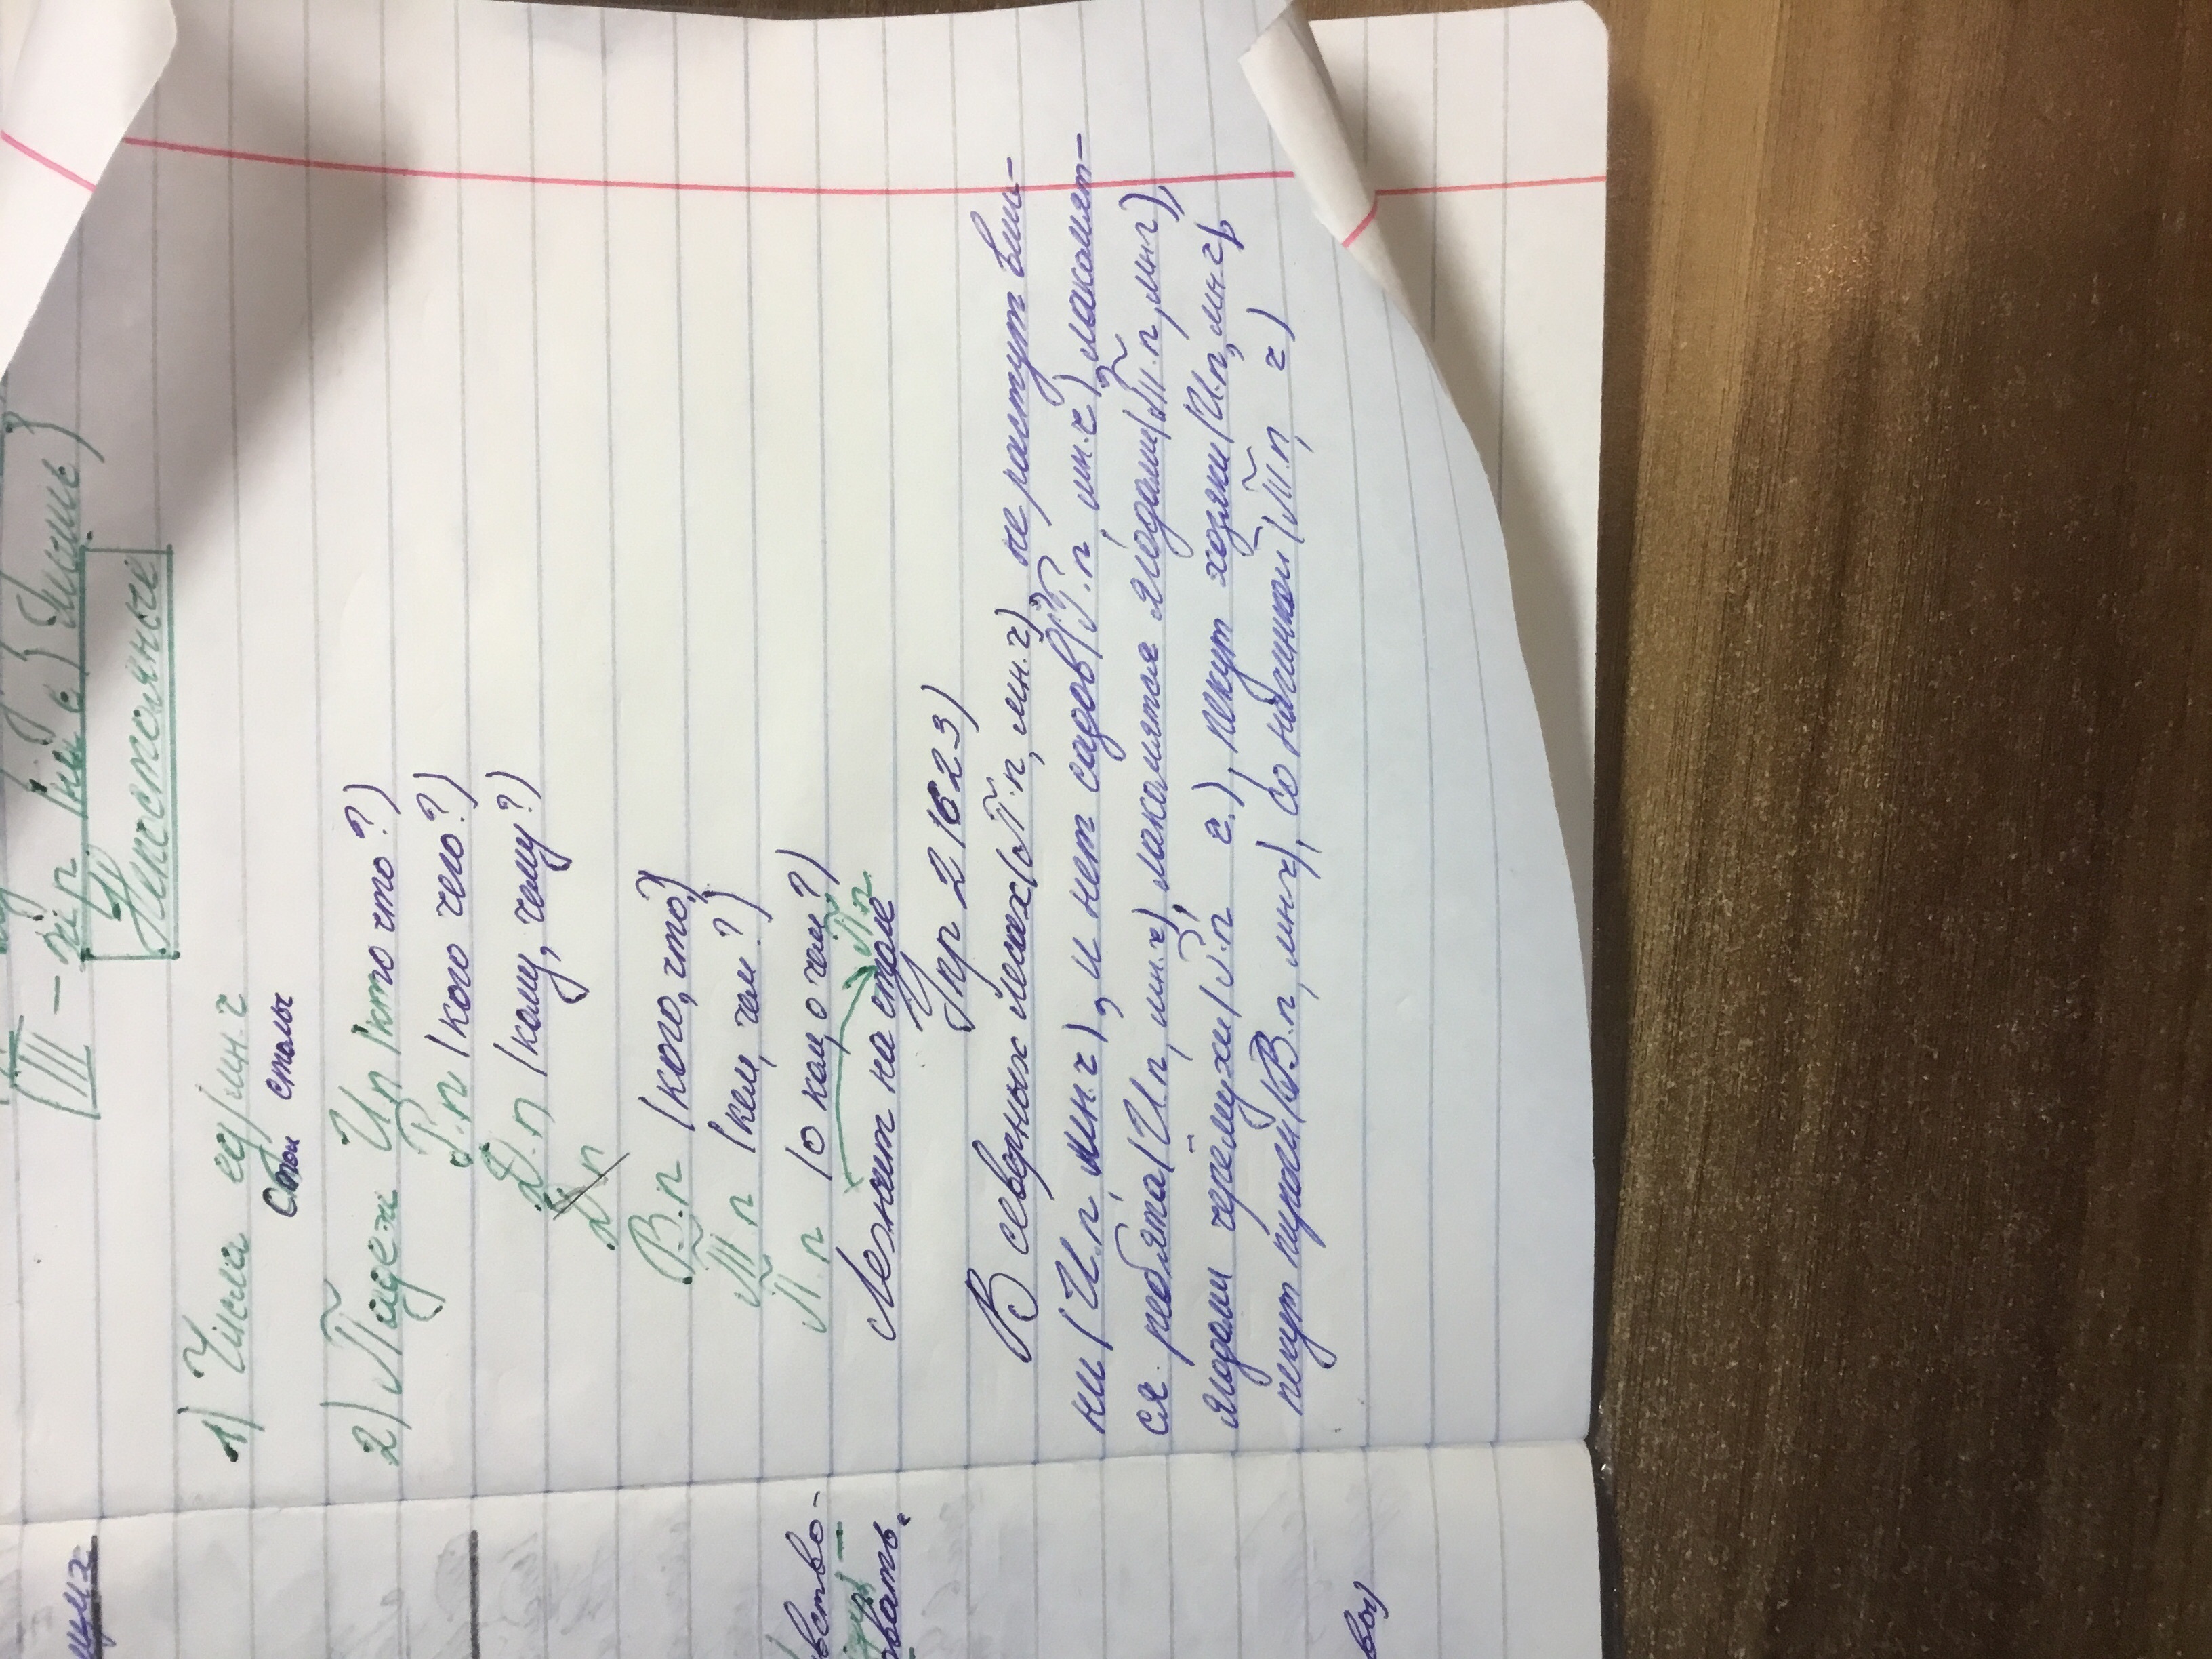 III – п (на )
Нексколяные
1) Числа ед/мн.ч
Стол столы
2) Падеж И п (кто что?)
Р.п (кого чего?)
Д.п (кому, чему?)
Д п
В.п (кого, что?)
Т п (кем, чем?)
П.п (о ком, о чем?)
Лежит на столе П п
Упр 2 (623)
В северных лесах (П.п, мн.ч) не растут виш-
ни (И.п мн.ч), и нет садов (Р.п мн.ч), лакомят-
ся ребята (И.п, мн.ч), лакомятся ягодами (Т.п, мн.ч),
ягодами черёмухи (Р.п е.), пекут хозяки (И.п, мн.ч),
пекут пироги (В.п, мн.ч), со начинкой (Т.п, ч)
вство-
овать.